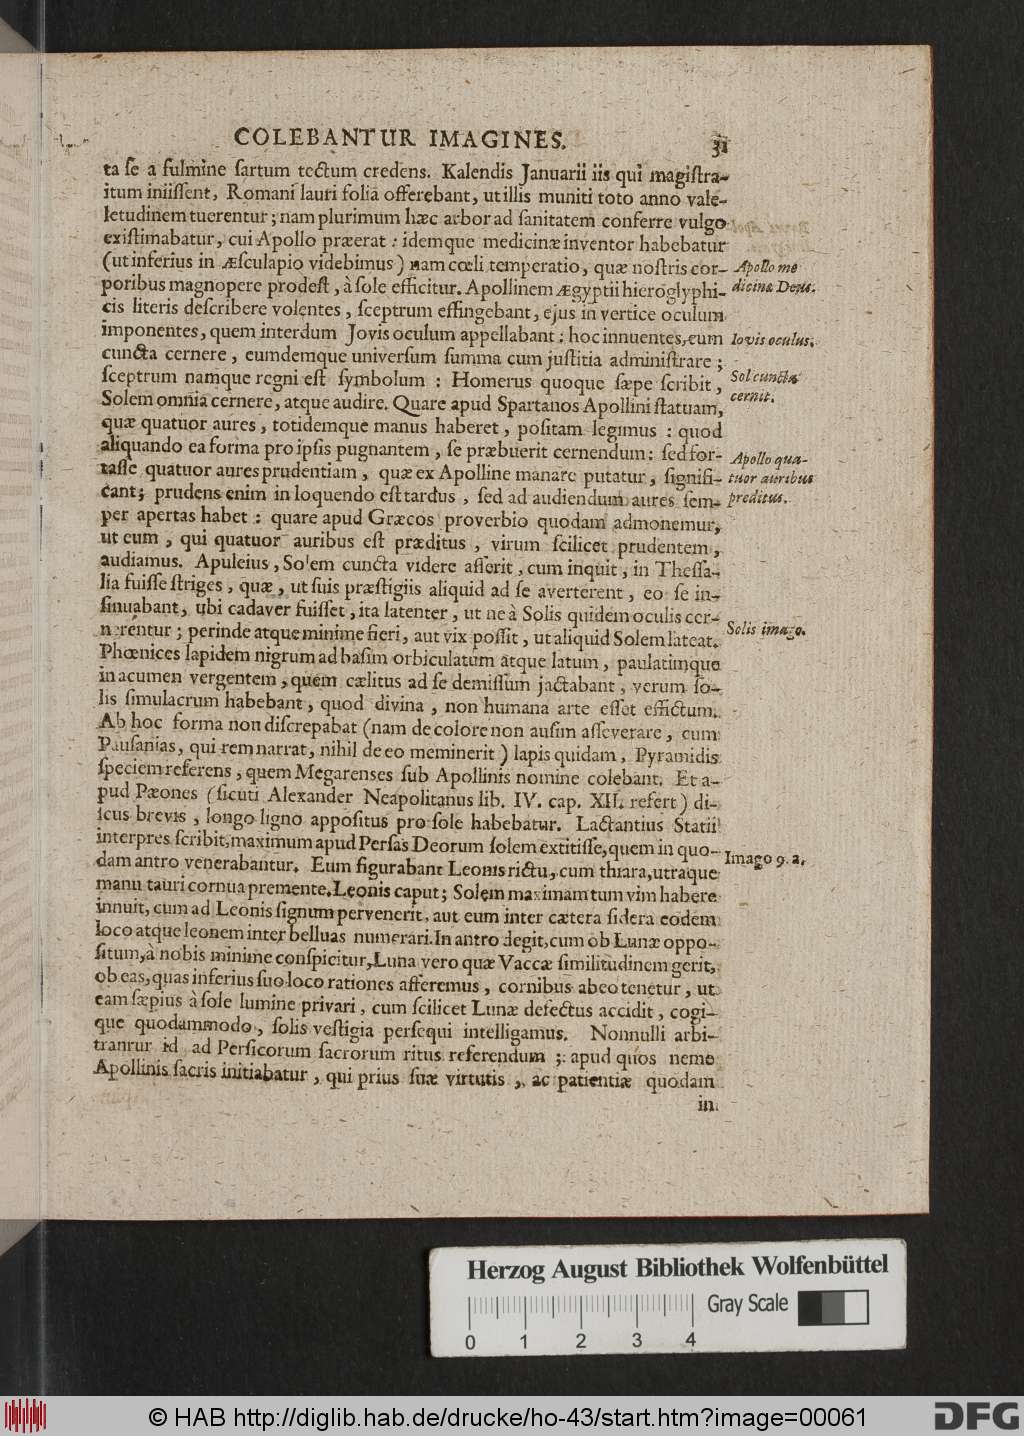 COLEBANTUR IMAGINES. 31
ta ſe a fulmine ſartum tectum credens. Kalendis Januarii iis qui magiſtra-
itum iniiſſent, Romani lauri folia offerebant, ut illis muniti toto anno vale-
letudinem tuerentur; nam plurimum hæc arbor ad ſanitatem conferre vulgo
exiſtimabatur, cui Apollo præerat: idemque medicinæ inventor habebatur
(ut inferius in Æſculapio videbimus) nam cœli temperatio, quæ noſtris cor-
Apollo me
poribus magnopere prodeſt, à ſole efficitur. Apollinem Ægyptii hieroglyphi-
dicinæ Deus.
cis literis deſcribere volentes, ſceptrum effingebant, ejus in vertice oculum
imponentes, quem interdum Jovis oculum appellabant: hoc innuentes, eum
Iovis oculus.
cuncta cernere, eumdemque univerſum ſumma cum juſtitia adminiſtrare;
ſceptrum namque regni eſt ſymbolum: Homerus quoque ſæpe ſcribit,
Sol cuncta
Solem omnia cernere, atque audire. Quare apud Spartanos Apollini ſtatuam,
cernit.
quæ quatuor aures, totidemque manus haberet, poſitam legimus: quod
aliquando ea forma pro ipſis pugnantem, ſe præbuerit cernendum: ſed for-
Apollo qua-
taſſe quatuor aures prudentiam, quæ ex Apolline manare putatur, ſignifi-
tuor auribus
cant; prudens enim in loquendo eſt tardus, ſed ad audiendum aures ſem-
preditus.
per apertas habet: quare apud Græcos proverbio quodam admonemur,
ut eum, qui quatuor auribus eſt præditus, virum ſcilicet prudentem,
audiamus. Apuleius, Solem cuncta videre aſſerit, cum inquit, in Theſſa-
lia fuiſſe ſtriges, quæ, ut ſuis præſtigiis aliquid ad ſe averterent, eo ſe in-
ſinuabant, ubi cadaver fuiſſet, ita latenter, ut ne à Solis quidem oculis cer-
nerentur; perinde atque minime fieri, aut vix poſſit, ut aliquid Solem lateat.
Solis imago.
Phœnices lapidem nigrum ad baſim orbiculatum atque latum, paulatimque
in acumen vergentem, quem cælitus ad ſe demiſſum jactabant, verum ſo-
lis ſimulacrum habebant, quod divina, non humana arte eſſet effictum.
Ab hoc forma non diſcrepabat (nam de colore non auſim aſſeverare, cum
Pauſanias, qui rem narrat, nihil de eo meminerit) lapis quidam, Pyramidis
ſpeciem referens, quem Megarenſes ſub Apollinis nomine colebant. Et a-
pud Pæones (ſicuti Alexander Neapolitanus lib. IV. cap. XII. refert) di-
ſcus brevis, longo ligno appoſitus pro ſole habebatur. Lactantius Statii
interpres ſcribit, maximum apud Perſas Deorum ſolem extitiſſe, quem in quo-
Imago 9. a.
dam antro venerabantur. Eum figurabant Leonis rictu, cum thiara, utraque
manu tauri cornua premente. Leonis caput; Solem maximam tum vim habere
innuit, cum ad Leonis ſignum pervenerit, aut eum inter cætera ſidera eodem
loco atque leonem inter belluas numerari. In antro degit, cum ob Lunæ oppo-
ſitum, à nobis minime conſpicitur, Luna vero quæ Vaccæ ſimilitudinem gerit,
ob eas, quas inferius ſuo loco rationes afferemus, cornibus ab eo tenetur, ut
eam ſæpius à ſole lumine privari, cum ſcilicet Lunæ defectus accidit, cogi-
que quodammodo, ſolis veſtigia perſequi intelligamus. Nonnulli arbi-
trantur id ad Perſicorum ſacrorum ritus referendum; apud quos nemo
Apollinis ſacris initiabatur, qui prius ſuæ virtutis, ac patientiæ quodam
in
Herzog August Bibliothek Wolfenbüttel
Gray Scale
0 1 2 3 4
© HAB http://diglib.hab.de/drucke/ho-43/start.htm?image=00061
DFG